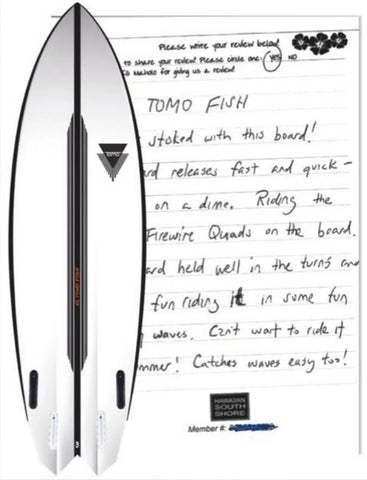 Please write your review below!
to share your review? Please circle one: YES NO
Mahalo for giving us a review!
TOMO FISH
stoked with this board!
rd releases fast and quick-
on a dime. Riding the
Firewire Quads on the board.
ard held well in the turns and
fun riding it in some fun
waves. Can't wait to ride it
mmer! Catches waves easy too!
TOMO
HAWAIIAN
SOUTH
SHORE
Member #: